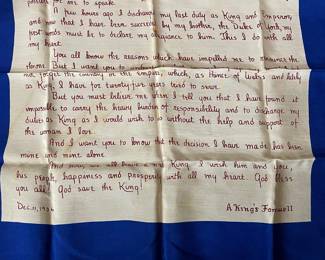 possible for me to speak.
A few hours ago I discharged my last duty as King and Emperor,
and now that I have been succeeded by my brother, the Duke of York, my
first words must be to declare my allegiance to him. This I do with all
my heart.
You all know the reasons which have impelled me to renounce the
throne. But I want you to understand
not forget the country or the empire, which, as Prince of Wales and lately
as King, I have for twenty five years tried to serve.
But you must believe me when I tell you that I have found it
impossible to carry the heavy burden of responsibility and to discharge my
duties as King as I would wish to do without the help and support of
the woman I love.
And I want you to know that the decision I have made has been
mine and mine alone.
And now, we all have a new King. I wish him and you,
his people, happiness and prosperity with all my heart. God bless
you all! God save the King!
Dec. 11, 1936
A King's Farewell